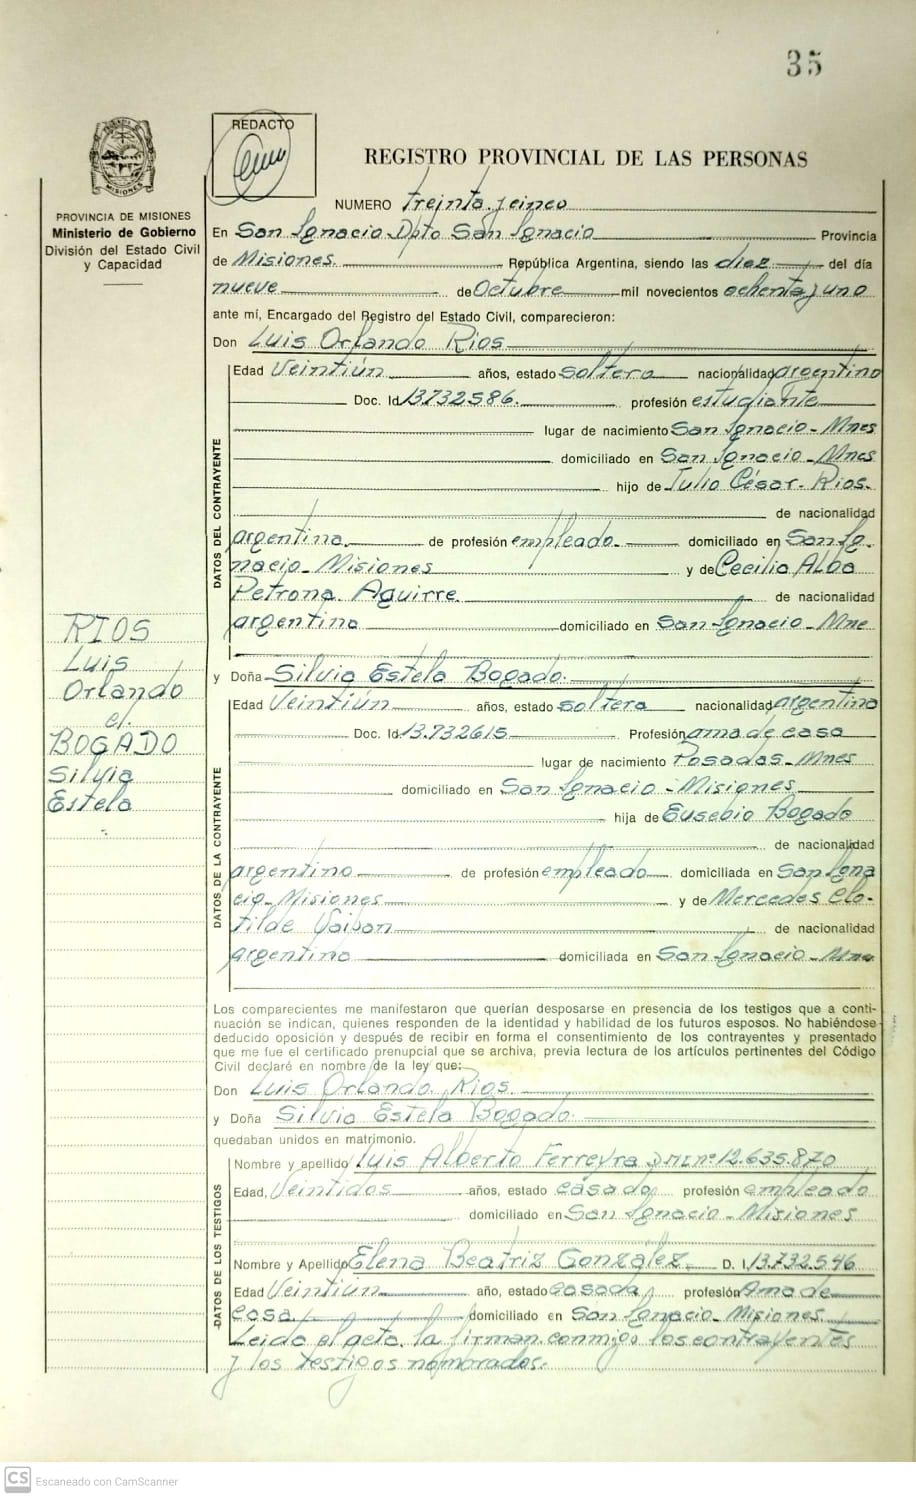 35
REDACTO
REGISTRO PROVINCIAL DE LAS PERSONAS
PROVINCIA DE MISIONES
Ministerio de Gobierno
División del Estado Civil
y Capacidad
NUMERO treinta y cinco
En San Ignacio Dpto San Ignacio Provincia
de Misiones. República Argentina, siendo las diez del día
nueve de Octubre mil novecientos ochenta y uno
ante mí, Encargado del Registro del Estado Civil, comparecieron:
Don Luis Orlando Rios
DATOS DEL CONTRAYENTE
Edad Veintiún años, estado soltero nacionalidad argentino
Doc. Id 13.732586. profesión estudiante
lugar de nacimiento San Ignacio - Mnes
domiciliado en San Ignacio - Mnes
hijo de Julio César Rios.
de nacionalidad
argentina de profesión empleado domiciliado en San Ig-
nacio - Misiones y de Cecilia Alba
Petrona Aguirre. de nacionalidad
argentina domiciliado en San Ignacio - Mne
RIOS
Luis
Orlando
c/.
BOGADO
Silvia
Estela
y Doña Silvia Estela Bogado.
DATOS DE LA CONTRAYENTE
Edad Veintiún años, estado soltera nacionalidad argentina
Doc. Id 13.732615 Profesión ama de casa
lugar de nacimiento Posadas - Mnes
domiciliado en San Ignacio - Misiones
hija de Eusebio Bogado
de nacionalidad
argentino de profesión empleado domiciliada en San Igna
cio - Misiones y de Mercedes Clo-
tilde de nacionalidad
argentina domiciliada en San Ignacio - Mnes
Los comparecientes me manifestaron que querían desposarse en presencia de los testigos que a conti-
nuación se indican, quienes responden de la identidad y habilidad de los futuros esposos. No habiéndose
deducido oposición y después de recibir en forma el consentimiento de los contrayentes y presentado
que me fue el certificado prenupcial que se archiva, previa lectura de los artículos pertinentes del Código
Civil declaré en nombre de la ley que:
Don Luis Orlando Rios.
y Doña Silvia Estela Bogado
quedaban unidos en matrimonio.
DATOS DE LOS TESTIGOS
Nombre y apellido Luis Alberto Ferreyra DNI nº 12.635.870
Edad, Veintidos años, estado casado profesión empleado
domiciliado en San Ignacio - Misiones
Nombre y Apellido Elena Beatriz González. D. I. 13.732.546
Edad Veintiún año, estado casada profesión Ama de
casa domiciliado en San Ignacio Misiones.
Leída el acta, la firman conmigo los contrayentes
y los testigos nombrados.
CS Escaneado con CamScanner